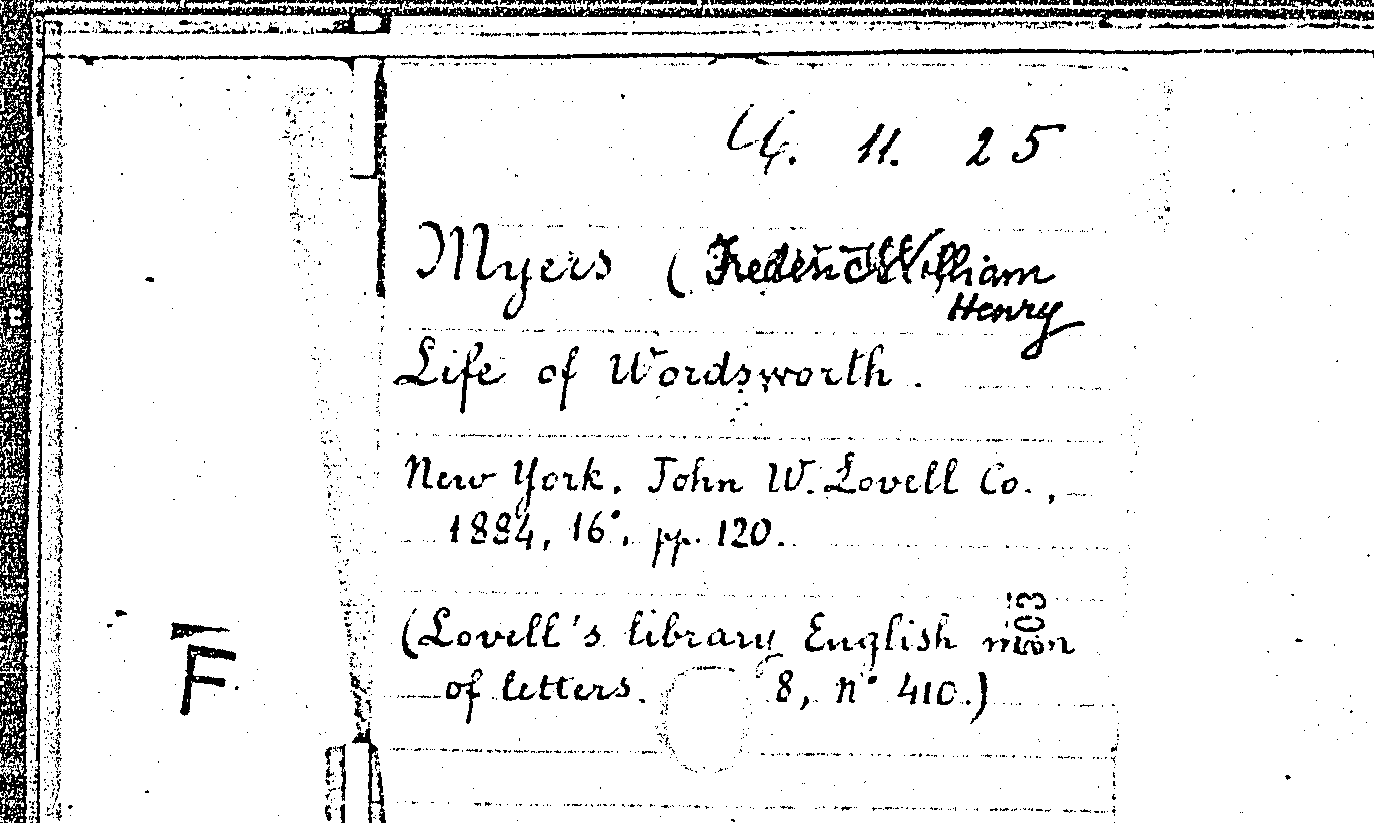 4. 11. 25
Myers (Frederic William
Henry
Life of Wordsworth.
New York, John W. Lovell Co.,
1884, 16°, pp. 120.
(Lovell's library English men
of letters. 8, n° 410.)
03
F